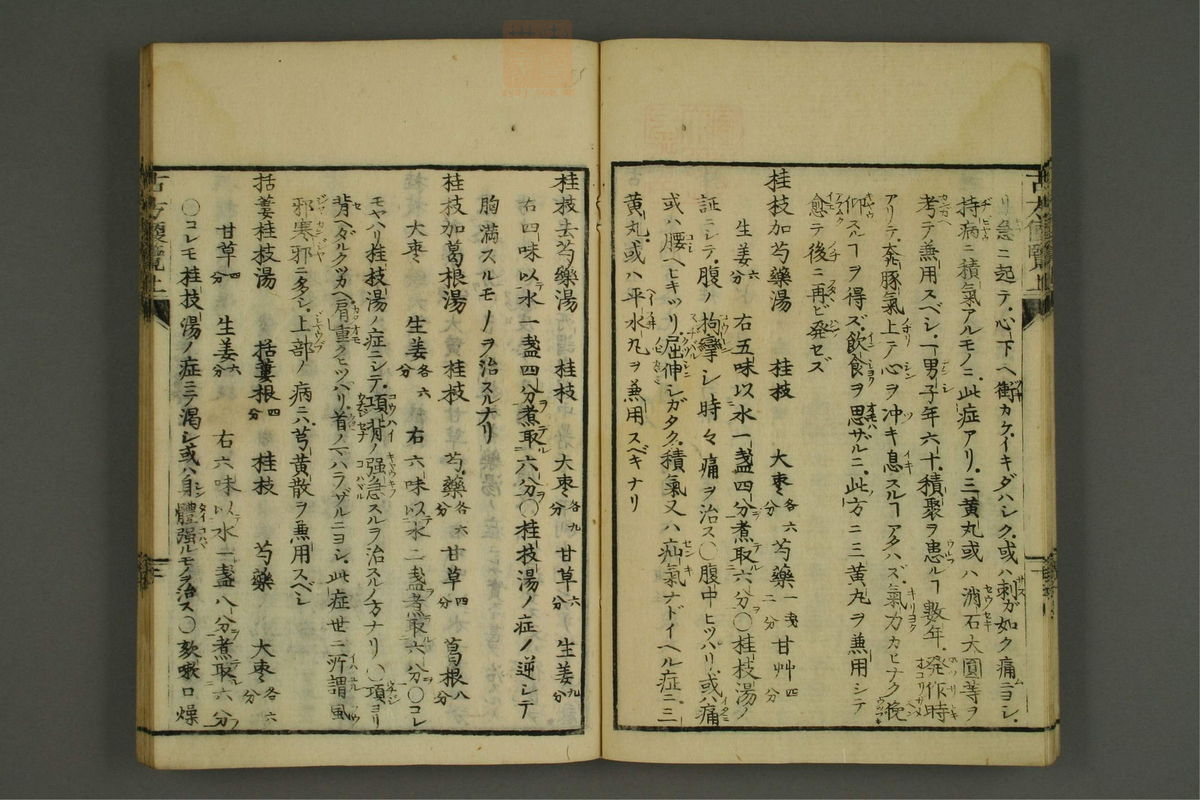 リ急ニ起テ、心下ヘ衝カケ、イキダハシク、或ハ刺ガ如ク痛ニヨシ、
持病ニ積氣アルモノニ、此症アリ、三黄丸或ハ消石大圓等ヲ
考テ兼用スベシ、一男子年六十、積聚ヲ患ルヿ数年、発作時
アリテ、奔豚氣上テ心ヲ冲キ息スルヿアタハズ、氣力カヒナク挽
仰スルヿヲ得ズ、飲食ヲ思ザルニ、此方ニ三黄丸ヲ兼用シテ
愈テ後ニ再ビ発セズ
桂枝加芍藥湯 桂枝 大棗各六分 芍藥一戔二分 甘艸四分
生姜六分 右五味以水一盞四分煮取六分〇桂枝湯ノ
証ニシテ、腹ノ拘攣シ時々痛ヲ治ス〇腹中ヒツパリ、或ハ痛
或ハ腰ヘヒキツリ、屈伸シガタク、積氣又ハ疝氣ナドイヘル症ニ、三
黄丸、或ハ平水丸ヲ兼用スベキナリ
桂枝去芍藥湯 桂枝 大棗各九分 甘草六分 生姜九分
右四味以水一盞四分煮取六分〇桂枝湯ノ症ノ逆シテ
胸満スルモノヲ治スルナリ
桂枝加葛根湯 桂枝 芍藥各六分 甘草四分 葛根八分
大棗 生姜各六分 右六味以水二盞煮取六分〇コレ
モヤハリ桂枝湯ノ症ニシテ、項背ノ强急スルヲ治スルノ方ナリ〇項ヨリ
背ダルクツカヘ肩重クヒツハリ首ノマハラザルニヨシ、此症世ニ所謂風
邪寒邪ニ多シ、上部ノ病ニハ、芎黄散ヲ兼用スベシ
括蔞桂枝湯 括蔞根四分 桂枝 芍藥 大棗各六分
甘草四分 生姜六分 右六味以水一盞八分煮取六分
〇コレモ桂枝湯ノ症ニテ渇シ或ハ身體强ルモノヲ治ス〇欬嗽口燥